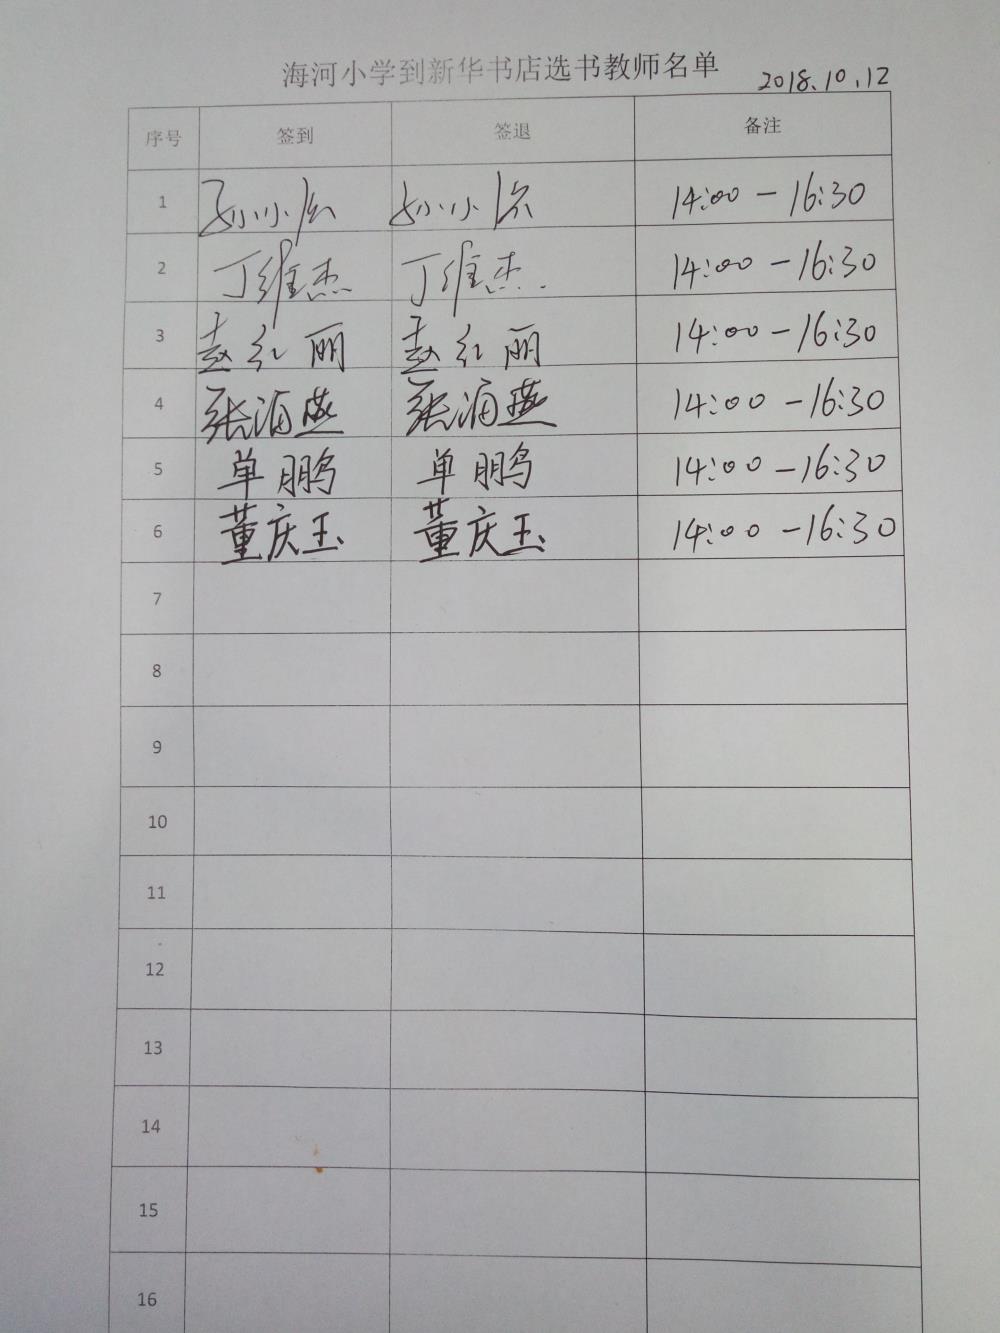 海河小学到新华书店选书教师名单 2018.10.12
序号 签到 签退 备注
1 孙小 孙小 14:00-16:30
2 丁维杰 丁维杰 14:00-16:30
3 赵红丽 赵红丽 14:00-16:30
4 张海燕 张海燕 14:00-16:30
5 单鹏 单鹏 14:00-16:30
6 董庆玉 董庆玉 14:00-16:30
7
8
9
10
11
12
13
14
15
16